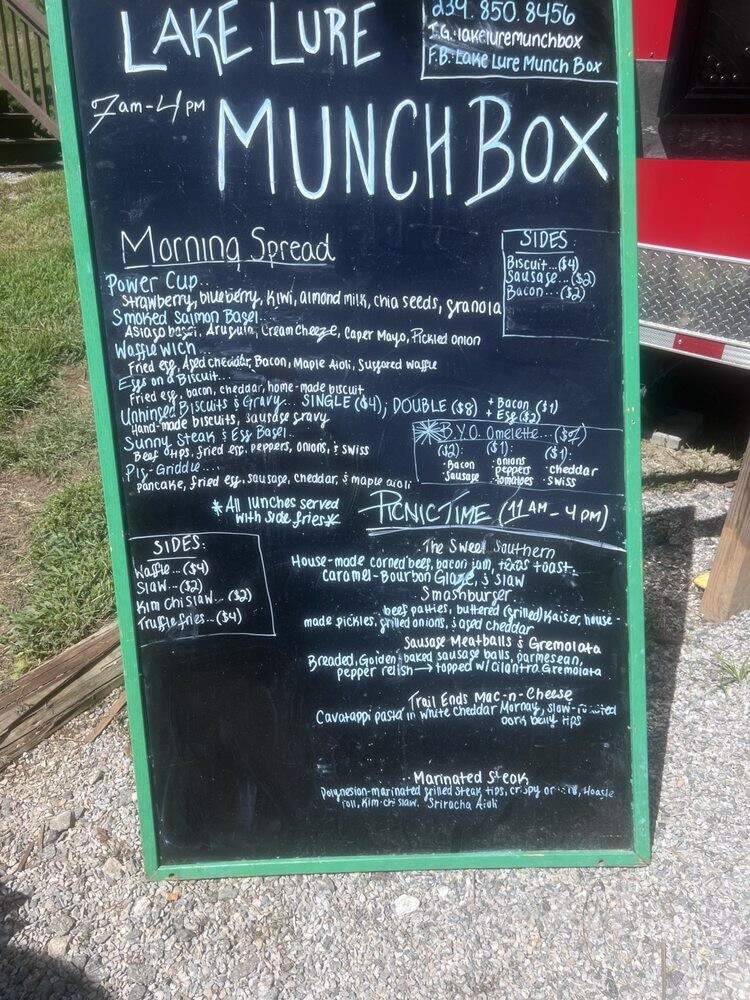 LAKE LURE
239.850.8456
I.G.: lakeluremunchbox
F.B.: Lake Lure Munch Box
7am-4PM
MUNCH BOX
Morning Spread
SIDES:
Biscuit...($4)
Sausage...($2)
Bacon...($2)
Power Cup...
Strawberry, blueberry, Kiwi, almond milk, chia seeds, granola
Smoked Salmon Bagel...
Asiago bagel, Arugula, Cream Cheeze, Caper Mayo, Pickled onion
Waffle Wich
Fried egg, Aged cheddar, Bacon, Maple Aioli, Suggared Waffle
Eggs on a Biscuit...
Fried egg, bacon, cheddar, home-made biscuit
Unhinged Biscuits & Gravy... SINGLE ($4); DOUBLE ($8) + Bacon ($1)
+ Egg ($2)
Hand-made biscuits, sausage gravy
Sunny Steak & Egg Bagel..
Beef tips, fried egg, peppers, onions, & swiss
Pig-Griddle....
pancake, fried egg, sausage, cheddar, & maple aioli
B.Y.O. Omelette...
($2): ($1): ($1):
·Bacon ·onions ·cheddar
·Sausage peppers ·swiss
·tomatoes
*All lunches served
with side fries*
PICNIC TIME (11 AM - 4 PM)
SIDES:
Waffle...($4)
Slaw...($2)
Kim Chi Slaw...($2)
Truffle fries...($4)
The Sweet Southern
House-made corned beef, bacon jam, texas toast,
Caramel-Bourbon Glaze, & slaw
Smashburger
beef patties, buttered (grilled) Kaiser, house-
made pickles, grilled onions, & aged cheddar
Sausage Meatballs & Gremolata
Breaded, Golden-baked sausage balls, parmesean,
pepper relish → topped w/ cilantro Gremolata
Trail Ends Mac-n-Cheese
Cavatappi pasta in white cheddar Mornay, slow-roasted
pork belly tips
Marinated Steak
Polynesian-marinated grilled steak tips, crispy Hoagie
roll, Kim-chi slaw, Sriracha Aioli